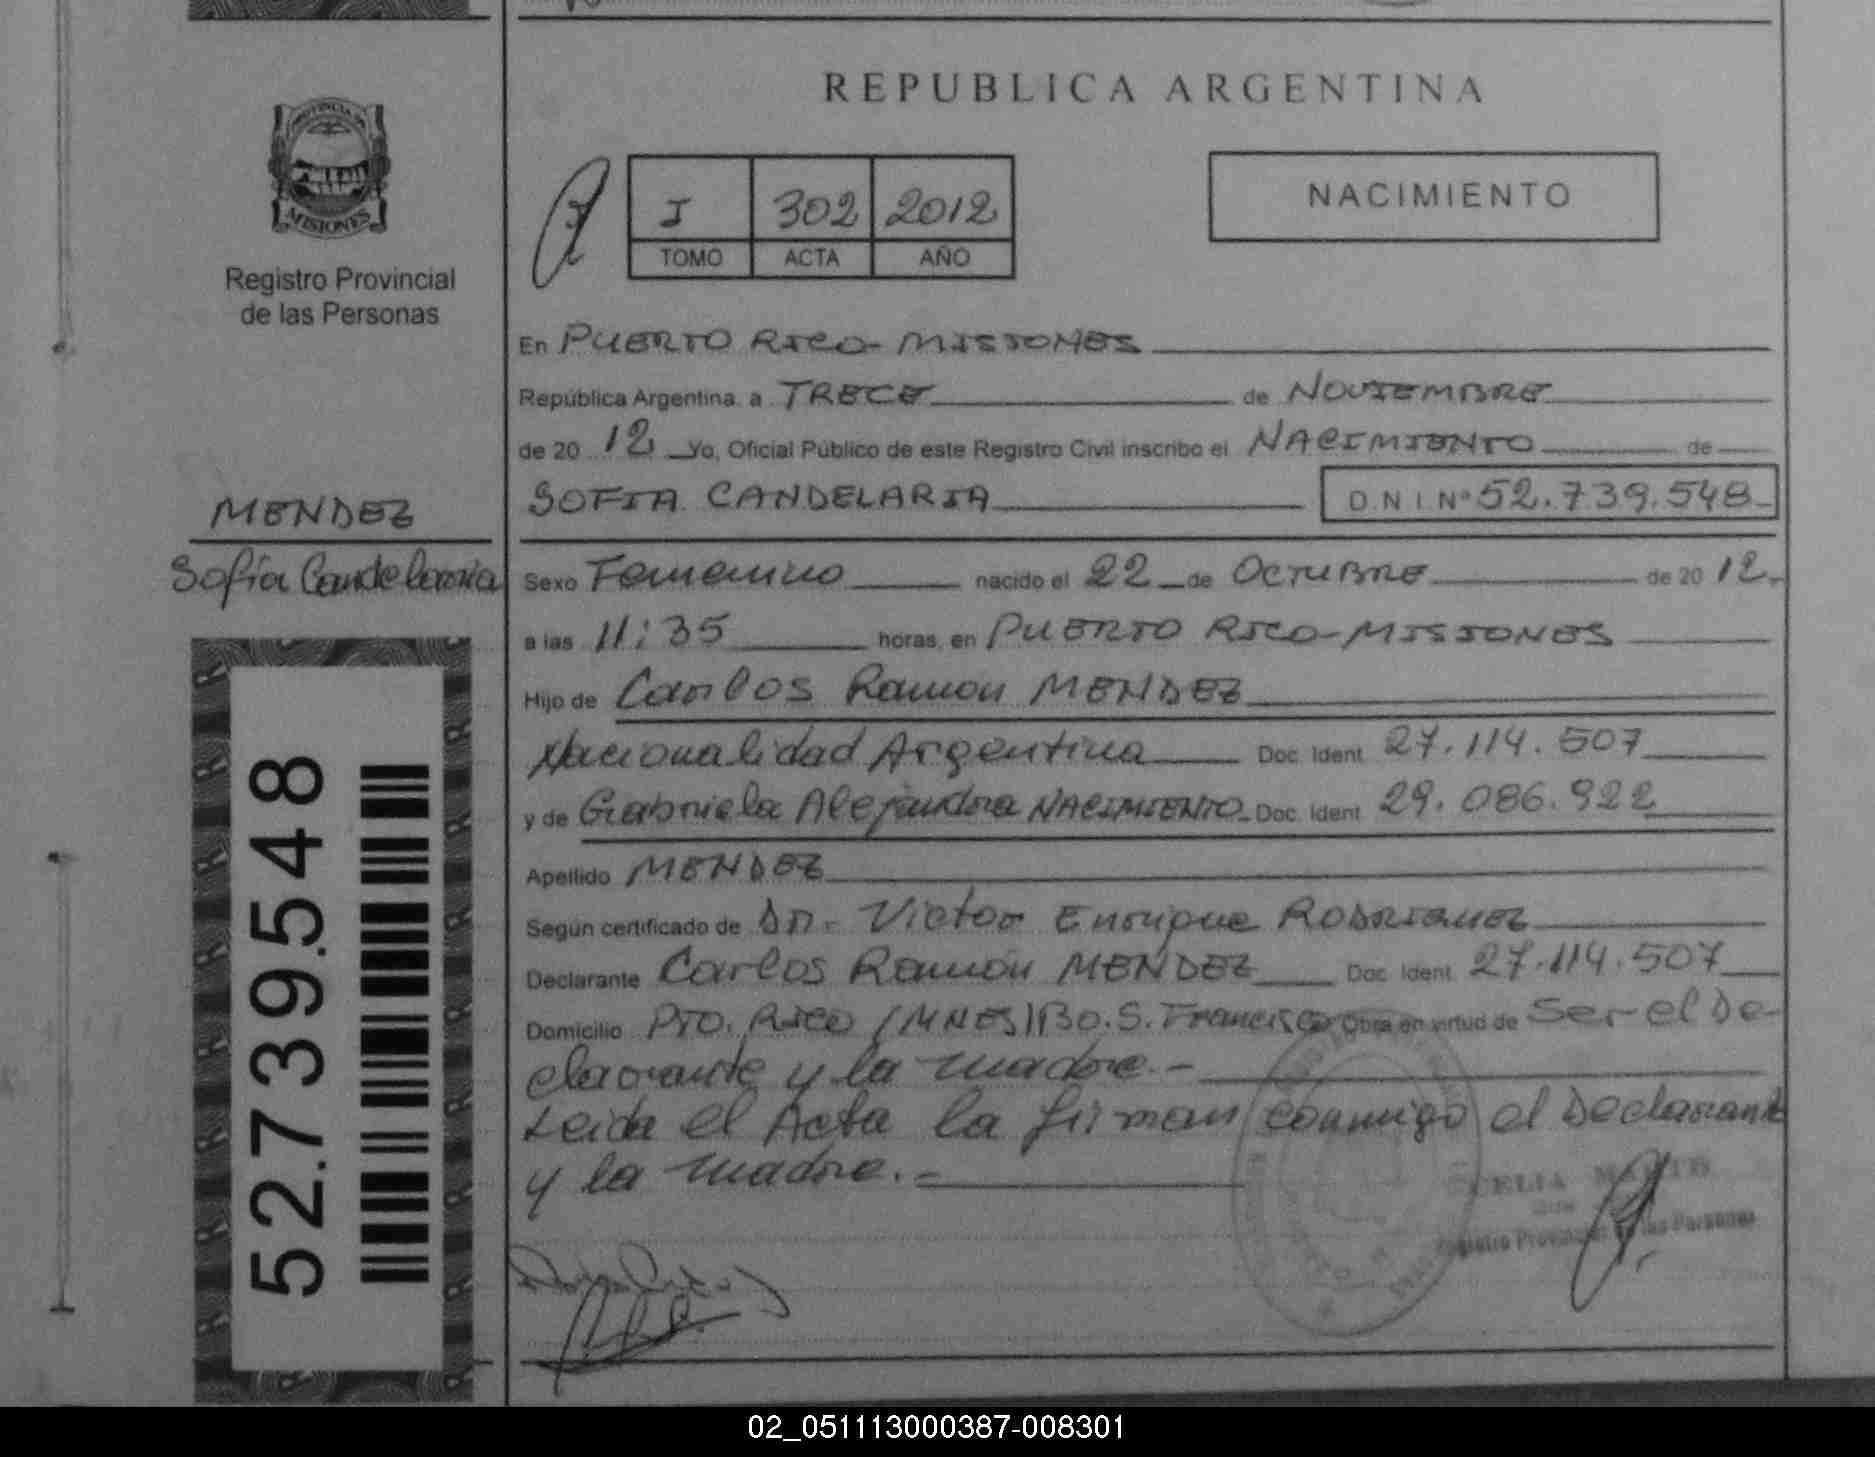 REPUBLICA ARGENTINA
PROVINCIA DE
MISIONES
Registro Provincial
de las Personas
I 302 2012
TOMO ACTA AÑO
NACIMIENTO
En PUERTO RICO - MISIONES
República Argentina a TRECE de NOVIEMBRE
de 20 12 Yo, Oficial Público de este Registro Civil inscribo el NACIMIENTO de
SOFIA CANDELARIA D.N.I. Nº 52.739.548
MENDEZ
Sofía Candelaria
Sexo Femenino nacido el 22 de OCTUBRE de 20 12.
a las 11:35 horas, en PUERTO RICO - MISIONES
Hijo de Carlos Ramón MENDEZ
Nacionalidad Argentina Doc. Ident 27.114.507
y de Gabriela Alejandra NACIMIENTO Doc. Ident 29.086.922
Apellido MENDEZ
Según certificado de Dr. Victor Enrique RODRIGUEZ
Declarante Carlos Ramón MENDEZ Doc. Ident 27.114.507
Domicilio PTO. RICO (MNES) Bo. S. Francisco Obra en virtud de Ser el De-
clarante y la madre.-
Leida el Acta la firman conmigo el Declarante
y la madre.-
52.739.548
CELIA
Registro Provincial de las Personas
02_051113000387-008301